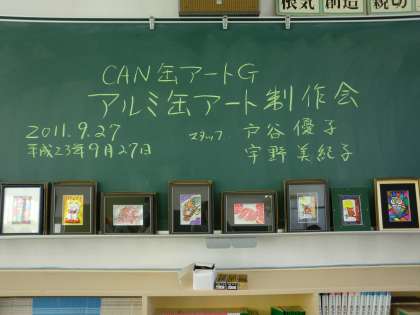 根気 創造 親切
CAN缶アートG
アルミ缶アート制作会
2011.9.27
平成23年9月27日
スタッフ 戸谷優子
宇野美紀子